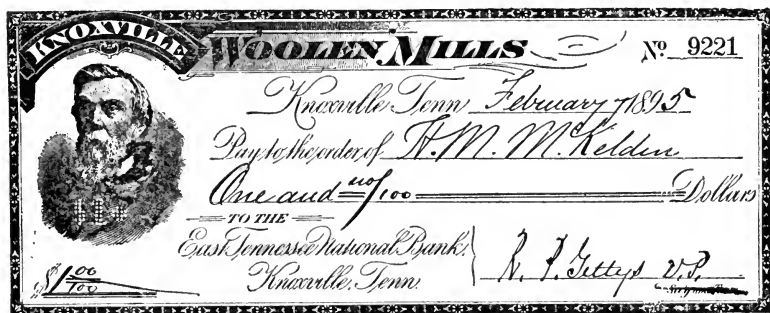 KNOXVILLE WOOLEN MILLS
No 9221
Knoxville, Tenn February 7 1895
Pay to the order of H. M. McKelden
One and no/100 Dollars
TO THE
East Tennessee National Bank.
Knoxville, Tenn.
R. P. Gettys V.P.
$1 00/100